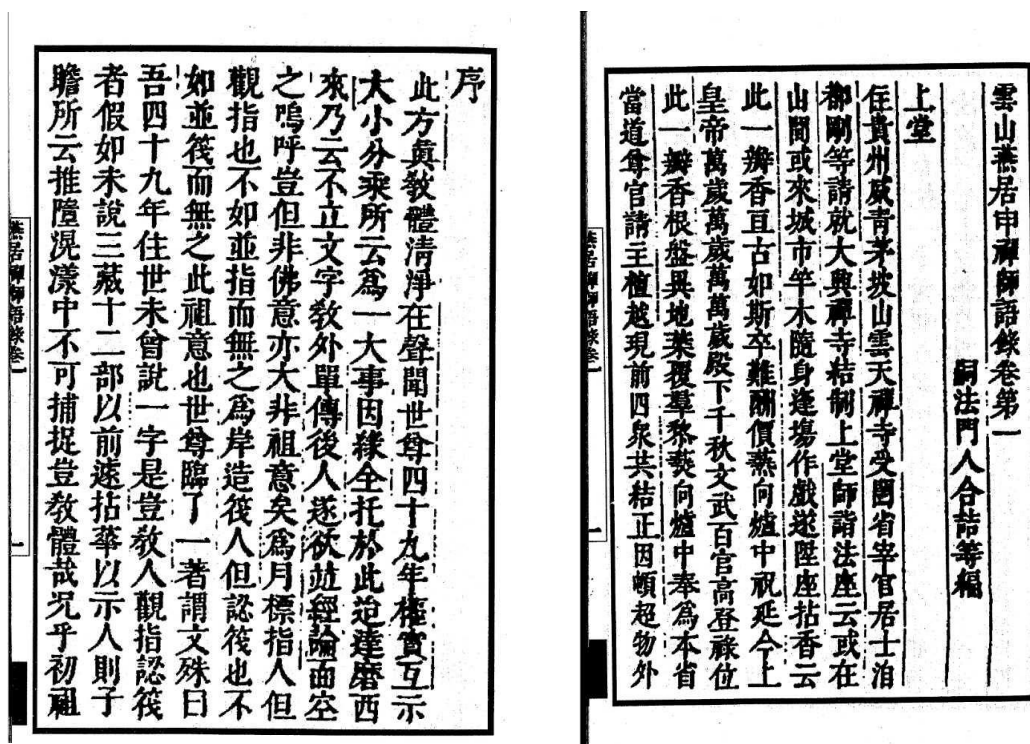 序
此方眞敎體清淨在聲聞世尊四十九年權實互示
大小分乘所云爲一大事因緣全托於此迨達磨西
來乃云不立文字敎外單傳後人遂欲並經論而空
之嗚呼豈但非佛意亦大非祖意矣爲月標指人但
觀指也不如並指而無之爲岸造筏人但認筏也不
如並筏而無之此祖意也世尊臨了一著謂文殊曰
吾四十九年住世未曾說一字是豈敎人觀指認筏
者假如未說三藏十二部以前速拈華以示人則子
瞻所云推墮滉漾中不可捕捉豈敎體哉況乎初祖
燕居禪師語錄卷一
一
雲山燕居申禪師語錄卷第一
嗣法門人合誥等編
上堂
住貴州威青茅坡山雲天禪寺受闔省宰官居士洎
都剛等請就大興禪寺結制上堂師詣法座云或在
山間或來城市竿木隨身逢場作戲遂陞座拈香云
此一瓣香亘古如斯卒難酬價爇向爐中祝延今上
皇帝萬歲萬歲萬萬歲殿下千秋文武百官高登祿位
此一瓣香根盤異地葉覆羣黎爇向爐中奉爲本省
當道尊官請主檀越現前四衆共結正因頓超物外
燕居禪師語錄卷一
一